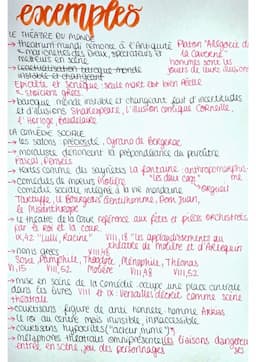 exemples
LE THÉÂTRE DU MONDE
→ theatrum mundi remonte à l'Antiquité Platon "Allégorie de
& marionnettes des Dieux, spectateurs et la caverne"
metteurs en scène hommes sont les
→ représentation baroque monde jouets de leurs illusions
instable et changeant
Epictète et Sénèque : seule mort est bien réelle
& stoïciens grecs
→ baroque monde instable et changeant fait d'incertitudes
et d'illusions Shakespeare, L'illusion comique Corneille,
L'Horloge, Baudelaire
LA COMÉDIE SOCIALE
→ les salons précosité, Cyrano de Bergerac
→ moralistes dénoncent la prépondérance du paraître
Pascal, Pensées
→ textes comme des saynètes La Fontaine : anthropomorphis-
→ comédies de moeurs Molière "les deux coqs" me
comédie sociale intégrée à la vie mondaine orgueil
Tartuffe, Le Bourgeois Gentilhomme, Dom Juan,
Le Misanthrope
→ le théâtre de la cour référence aux fêtes et pièces orchestrées
par le roi et la cour
IX,42 "Lulli, Racine" VIII,18 "les applaudissements au
théâtre de Molière et d'Arlequin
→ noms grecs VIII,48
Sosie, Pamphile, Théodote, Ménophile, Théonas
VI,15 VIII,52 Molière VIII,48 VIII,52
→ mise en scène de la comédie occupe une place centrale
dans les livres VIII et IX : Versailles décrit comme scène
théâtrale
→ courtisans figure de anti honnête homme Arrias
→ le roi au centre mais invisible, inaccessible
→ courtisans hypocrites ("acteur, mime")
→ métaphore théâtrale omniprésente Les liaisons dangereu-
entrée en scène, jeu des personnages ses